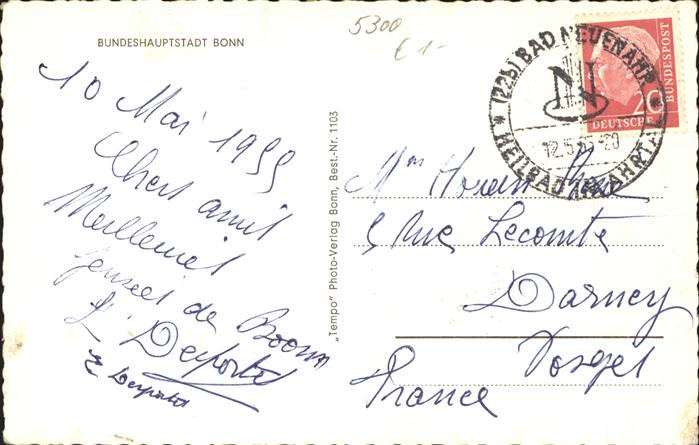 BUNDESHAUPTSTADT BONN
5300
€ 1-
10 Mai 1955
Chers amis
Meilleures
pensées de Bonn
L' Deporte
E Deporte
„Tempo" Photo-Verlag Bonn, Best.-Nr. 1103
(22b) BAD NEUENAHR
N
12.5.55-20
HEILBAD IM AHRTAL
20
DEUTSCHE
BUNDESPOST
Mm
5 Rue Lecomte
Darney
Vosges
France